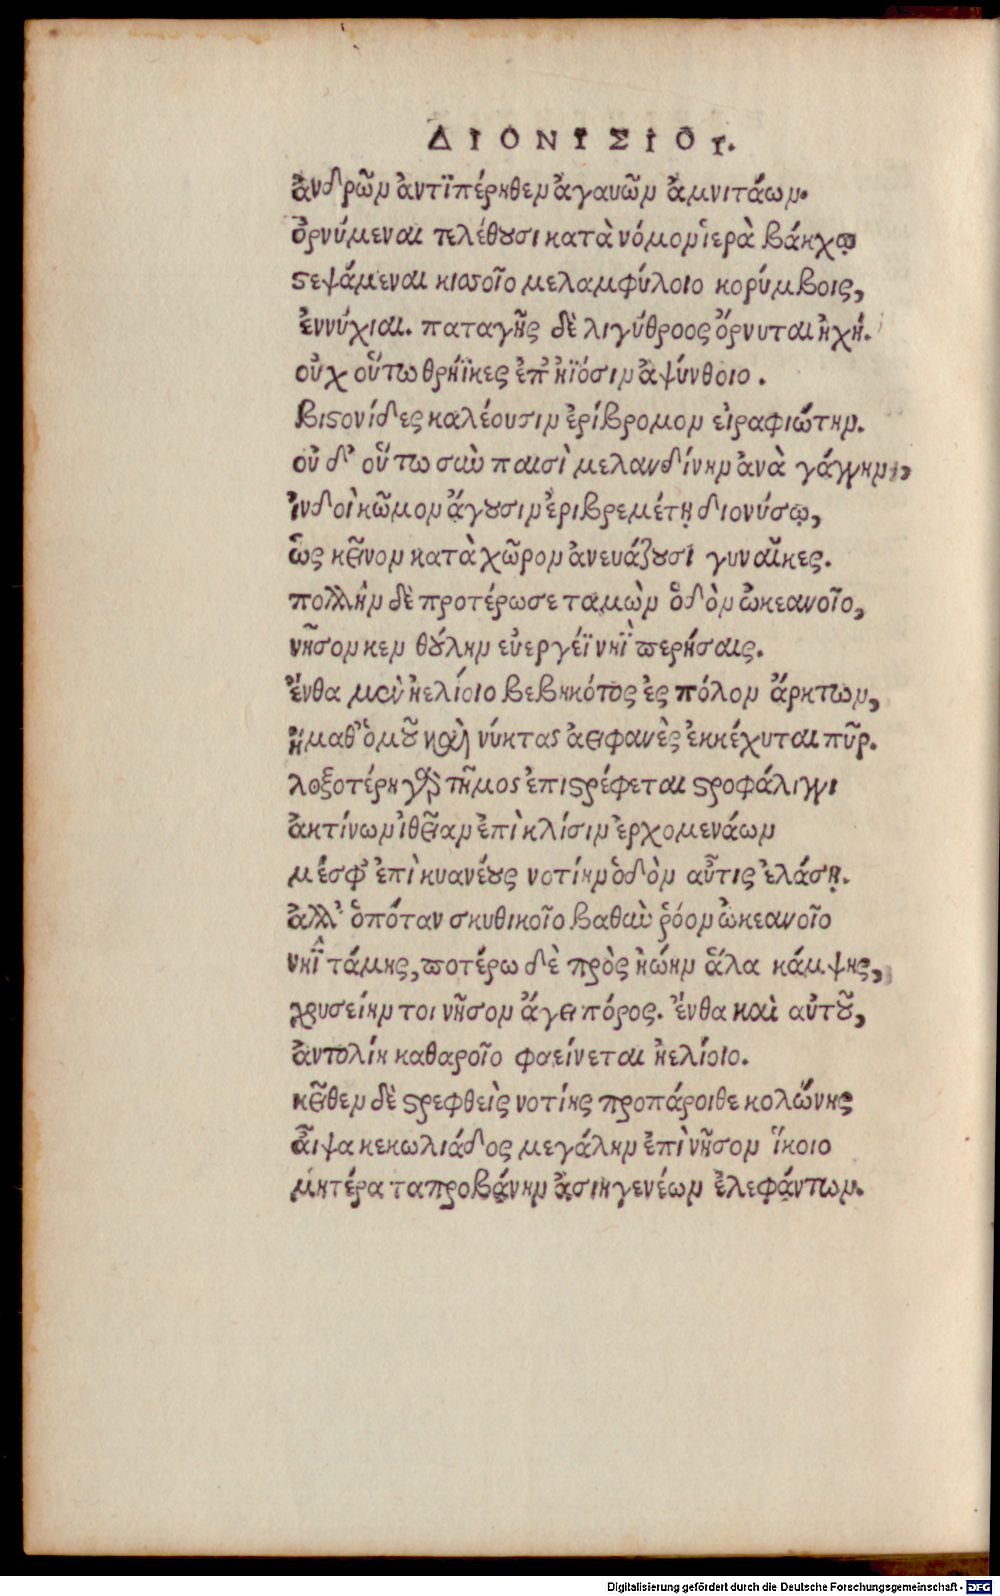 ΔΙΟΝΥΣΙΟΥ.
ἀνδρῶν ἀντϊπέρηθεν ἀγαυῶν ἀμνιτάων.
ὀρνύμεναι τελέθουσι κατὰ νόμον ἱερὰ βάκχῳ
στεψάμεναι κισσοῖο μελαμφύλοιο κορύμβοις,
ἐννύχιαι. παταγῆς δὲ λιγύθροος ὄρνυται ἠχή.
οὐχ οὕτω θρήϊκες ἐπ' ἠϊόσιν ἀψύνθοιο.
βιστονίδες καλέουσιν ἐρίβρομον εἰραφιώτην.
οὐ δ' οὕτω σὺν παισὶ μελανδίνην ἀνὰ γάγγην,
ἰνδοὶ κῶμον ἄγουσιν ἐριβρεμέτῃ διονύσῳ,
ὡς κεῖνον κατὰ χῶρον ἀνευάζουσι γυναῖκες.
πολλὴν δὲ προτέρωσε ταμὼν ὁδὸν ὠκεανοῖο,
νῆσον κεν θούλην εὐεργέϊ νηῒ περήσαις.
ἔνθα μὲν ἠελίοιο βεβηκότος ἐς πόλον ἄρκτων,
ἤμαθ' ὁμοῦ καὶ νύκτας ἀειφανὲς ἐκκέχυται πῦρ.
λοξοτέρη γὰρ τῆμος ἐπιστρέφεται στροφάλιγγι
ἀκτίνων ἰθεῖαν ἐπὶ κλίσιν ἐρχομενάων
μέσφ' ἐπὶ κυανέους νοτίην ὁδὸν αὖτις ἐλάσῃ.
ἀλλ' ὁπόταν σκυθικοῖο βαθὺν ῥόον ὠκεανοῖο
νηῒ τάμης, ποτέρω δὲ πρὸς ἠώην ἅλα κάμψης,
χρυσείην τοι νῆσον ἄγει πόρος. ἔνθα καὶ αὐτοῦ,
ἀντολίη καθαροῖο φαείνεται ἠελίοιο.
κεῖθεν δὲ στρεφθεὶς νοτίης προπάροιθε κολώνης
αἶψα κεκωλιάδος μεγάλην ἐπὶ νῆσον ἵκοιο
μητέρα ταπροβάνην ἀσιηγενέων ἐλεφάντων.
Digitalisierung gefördert durch die Deutsche Forschungsgemeinschaft - DFG